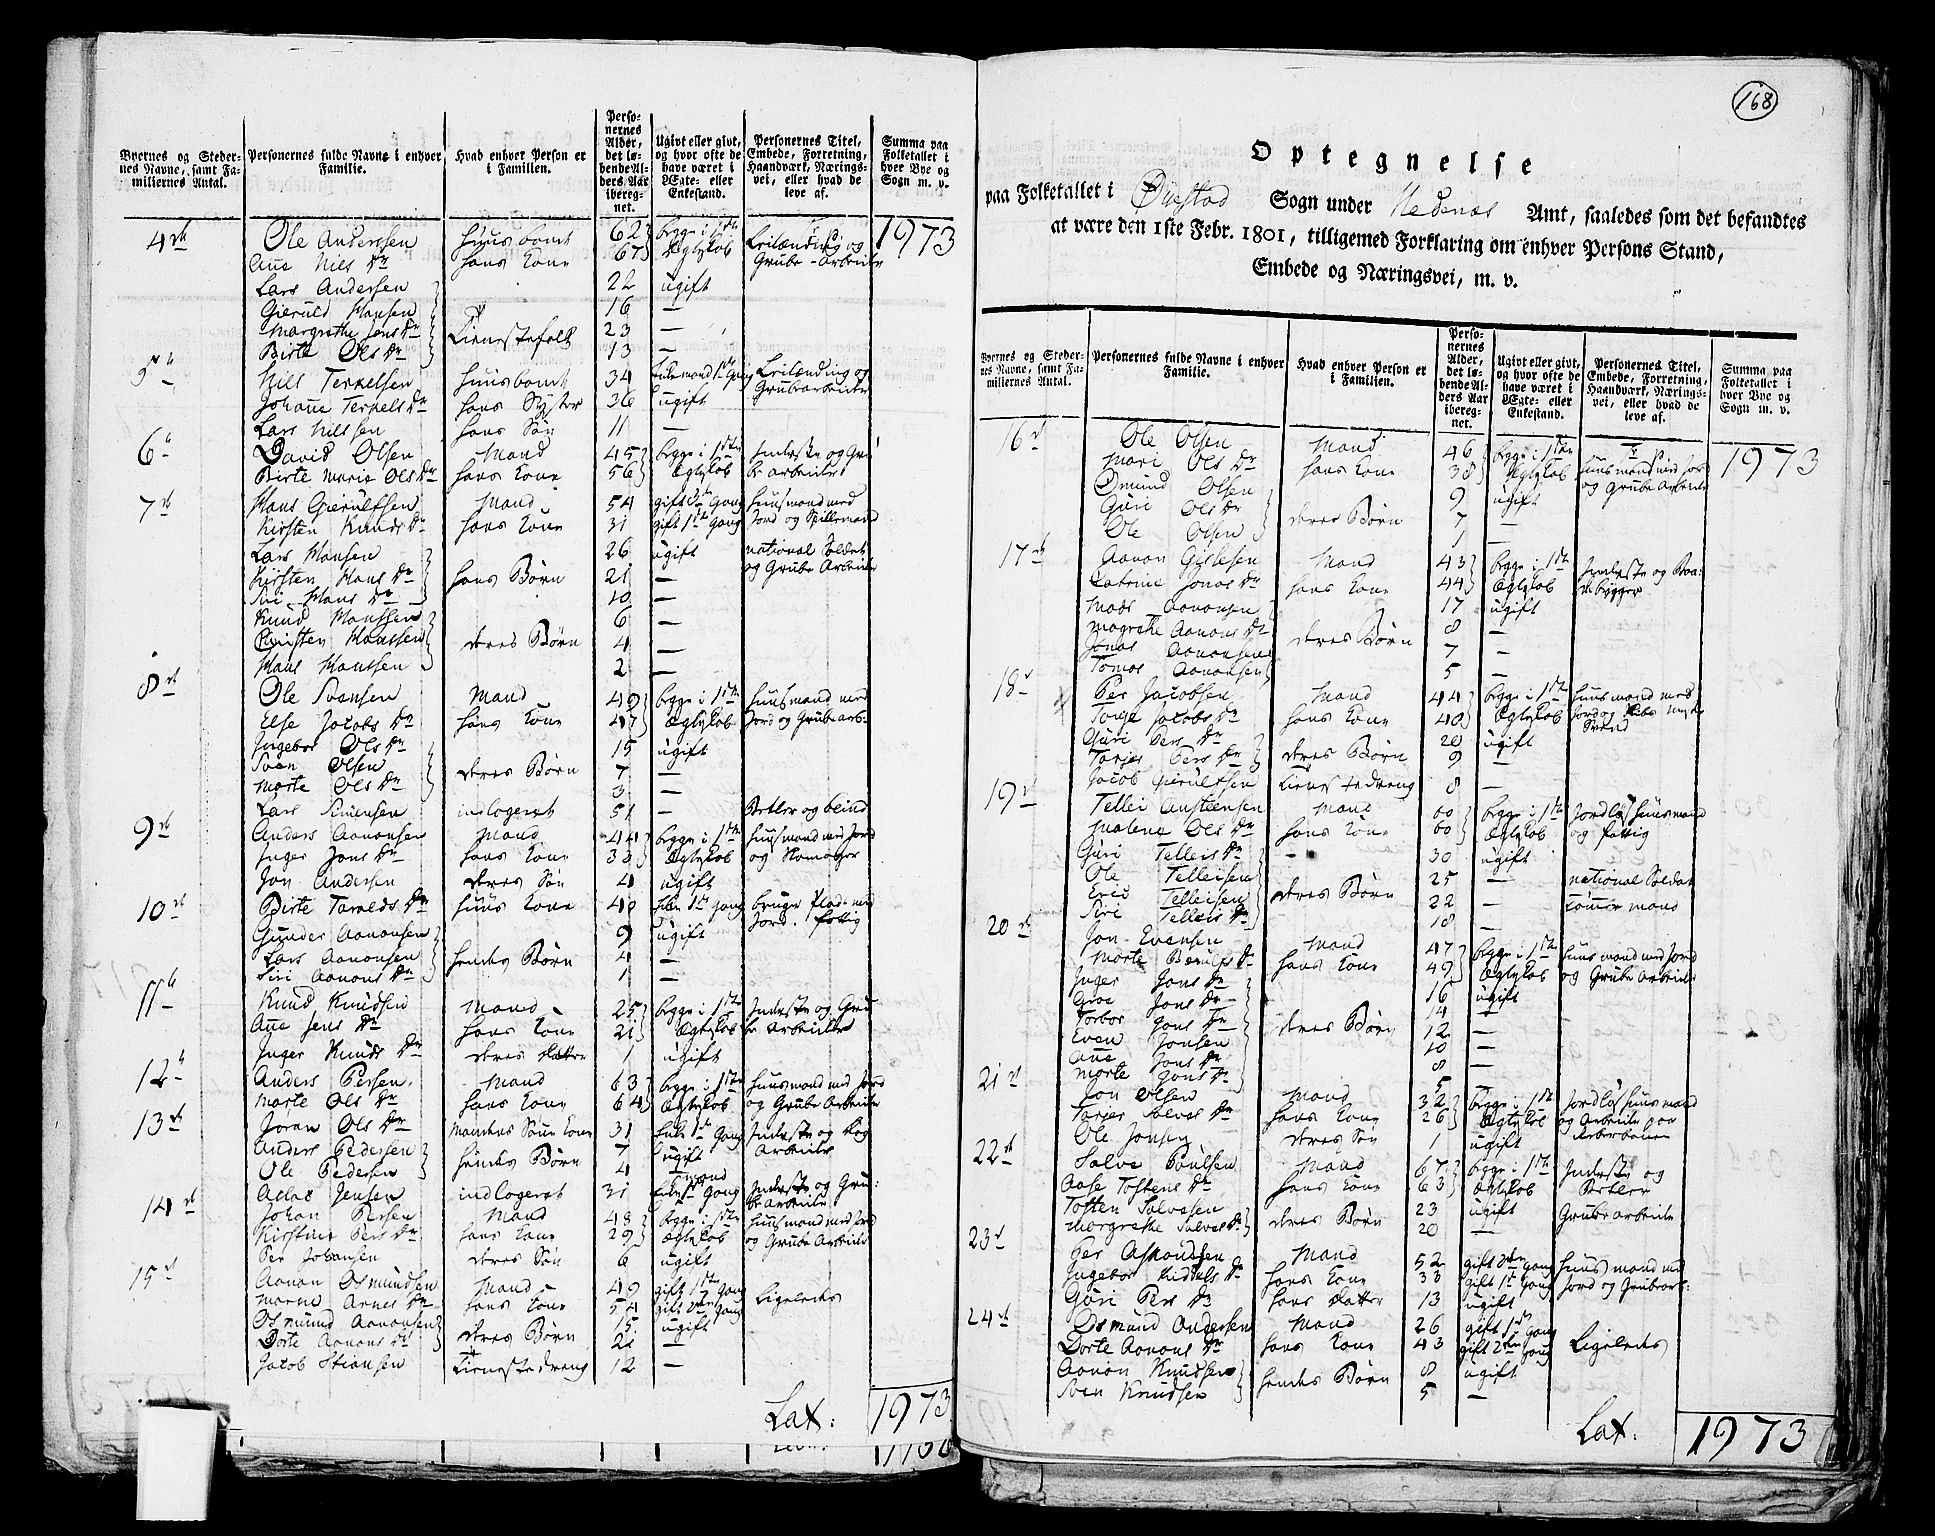 Byernes og Steder-
nes Navne, samt Fa-
miliernes Antal.
Personernes fulde Navne i enhver
Familie.
Hvad enhver Person er
i Familien.
Perso-
nernes
Alder,
det lø-
bende Al-
ders Aar
ibereg-
net.
Ugivt eller givt,
og hvor ofte de
have været i
Ægte- eller
Enkestand.
Personernes Titel,
Embede, Forretning,
Haandværk, Nærings-
vei, eller hvad de
leve af.
Summa paa
Folketallet i
hver Bye og
Sogn m. v.
4de Ole Anderssen Huusbont 62 begge i 1ste Leilænding og 1973
Ane Nils Dr hans Kone 67 Egteskab Grube-Arbeider
Lars Andersen 22 ugift
Gieruld Hansen 16 —
Margrethe Jens Dr Tienestefolk 23 —
Birte Ols Dr 13 —
5te Nils Terkelsen Huusbont 34 Enkemand 1ste Gang Leilænding og
Johane Terkels Dr hans Syster 36 ugift Grubearbeider
Lars Nilssen hans Søn 11 —
6te David Olsen Mand 45 begge i 1ste Inderste og Gru
Birte Marie Ols Dr hans Kone 56 Egteskab be arbeider
7de Hans Gierulfsen Mand 54 gift 2den Gang huusmand med
Kirsten Knuds Dr hans Kone 31 gift 1ste Gang Jord og Spillemand
Lars Hansen 26 ugift national Soldat
og Grube Arbeider
Kirsten Hans Dr hans Børn 21 —
Siri Hans Dr 10 —
Knud Hanssen 6 —
Christen Hanssen deres Børn 4 —
Hans Hanssen 2 —
8de Ole Svensen Mand 49 begge i 1ste huusmand med
Else Jacobs Dr hans Kone 47 Egteskab Jord og Grubearb-
Ingebor Ols Dr 15 ugift
Sven Olsen deres Børn 7 —
Marte Ols Dr 3 —
Lars Simensen indlogeret 51 — Betler og blind
9de Anders Aanonsen Mand 44 begge i 1ste huusmand med Jord
Inger Jens Dr hans Kone 33 Egteskab og Skomager
Jon Andersen deres Søn 4 ugift
10de Birte Taralds Dr huus Kone 40 Enke 1ste Gang bruger Plads med
Jord. fattig
Gunder Aanonsen 9 ugift
Lars Aanonsen hendes Børn 4 —
Siri Aanons Dr 1 —
11te Knud Knudsen Mand 25 begge i 1ste Inderste og Gru
Ane Jens Dr hans Kone 21 Egteskab be Arbeider
Inger Knuds Dr deres Datter 1 ugift
12te Anders Persen Mand 63 begge i 1ste huusmand med Jord
Marte Ols Dr hans Kone 64 Egteskab og Grube Arbeider
13de Joran Ols Dr Mandens Søns Kone 31 Enke 1ste Gang Inderste og
Anders Pedersen hendes Børn 7 ugift Arbeider
Ole Pedersen 4 —
Aslac Jensen indlogeret 31 Enkemand 1ste Gang Inderste og Gru-
be arbeider
14de Johan Persen Mand 48 begge i 1ste huusmand med Jord
Kirstine Pers Dr hans Kone 29 Egteskab og Grube Arbeider
Per Johansen deres Søn 6 ugift
15de Aanon Osmundsen Mand 49 gift 1ste Gang Ligeledes
Maren Arnes Dr hans Kone 54 gift 2den Gang
Osmund Aanonsen 15 ugift
Dorte Aanons Dr deres Børn 21 —
Jacob Stiansen Tienestedreng 12 —
Lat: 1973
168
Optegnelse
paa Folketallet i Øyestad Sogn under Nedenæs Amt, saaledes som det befandtes
at være den 1ste Febr. 1801, tilligemed Forklaring om enhver Persons Stand,
Embede og Næringsvei, m. v.
Byernes og Steder-
nes Navne, samt Fa-
miliernes Antal.
Personernes fulde Navne i enhver
Familie.
Hvad enhver Person er
i Familien.
Perso-
nernes
Alder,
det lø-
bende Al-
ders Aar
ibereg-
net.
Ugivt eller givt,
og hvor ofte de
have været i
Ægte- eller
Enkestand.
Personernes Titel,
Embede, Forretning,
Haandværk, Nærings-
vei, eller hvad de
leve af.
Summa paa
Folketallet i
hver Bye og
Sogn m. v.
16de Ole Olsen Mand 46 begge i 1ste huusmand med Jord 1973
Mari Ols Dr hans Kone 38 Egteskab og Grube Arbeider
Osmund Olsen 9 ugift
Guri Ols Dr deres Børn 7 —
Ole Olsen 1 —
17de Aanon Gislesen Mand 43 begge i 1ste Inderste og Baa-
Catrine Jonas Dr hans Kone 44 Egteskab debygger
Mads Aanonsen 17 ugift
Magrethe Aanons Dr deres Børn 8 —
Jonas Aanonsen 7 —
Tomas Aanonsen 5 —
18de Per Jacobsen Mand 44 begge i 1ste huusmand med
Torge Jacobs Dr hans Kone 40 Egteskab Jord og
Guri Pers Dr 20 ugift
Tarjer Pers Dr deres Børn 9 —
Jacob Gierulfsen Tienestedreng 8 —
19de Tellei Ansteensen Mand 60 begge i 1ste Jordløs huusmand
Malene Ols Dr hans Kone 60 Egteskab og fattig
Guri Telleis Dr — 30 ugift
Ole Telleisen 25 — national Soldat
Even Telleisen deres Børn 22 — Tømmermand
Siri Telleis Dr 18 —
20de Jon Evensen Mand 47 begge i 1ste huusmand med Jord
Marte Berulfs Dr hans Kone 49 Egteskab og Grube Arbeider
Inger Jons Dr 16 ugift
Groe Jons Dr 14 —
Torbor Jons Dr deres Børn 12 —
Even Jonsen 10 —
Ane Jons Dr 8 —
Marte Jons Dr 5 —
21de Jon Olsen Mand 32 begge i 1ste Jordløs huusmand
Tarjer Salves Dr hans Kone 26 Egteskab og Arbeider paa
Ole Jonsen deres Søn 1 ugift
22de Salve Poulsen Mand 67 begge i 1ste Inderste og
Aase Tostens Dr hans Kone 63 Egteskab Betler
Tosten Salvesen 23 ugift Grubearbeider
Margrethe Salves Dr deres Børn 20 —
23de Per Asmundsen Mand 52 gift 2den Gang huusmand med
Ingebor Kittels Dr hans Kone 33 gift 1ste Gang Jord og Grubearb-
Guri Pers Dr hans Datter 13 ugift
24de Osmund Andersen Mand 26 gift 1ste Gang Ligeledes
Dorte Aanons Dr hans Kone 43 gift 2den Gang
Aanon Knudsen hendes Børn 8 ugift
Sven Knudsen 5 —
Lat: 1973